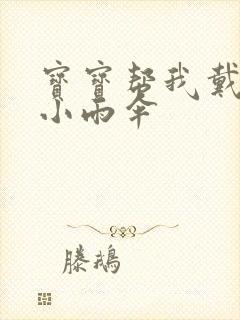 寶寶帮我戴
小雨伞
滕鵝